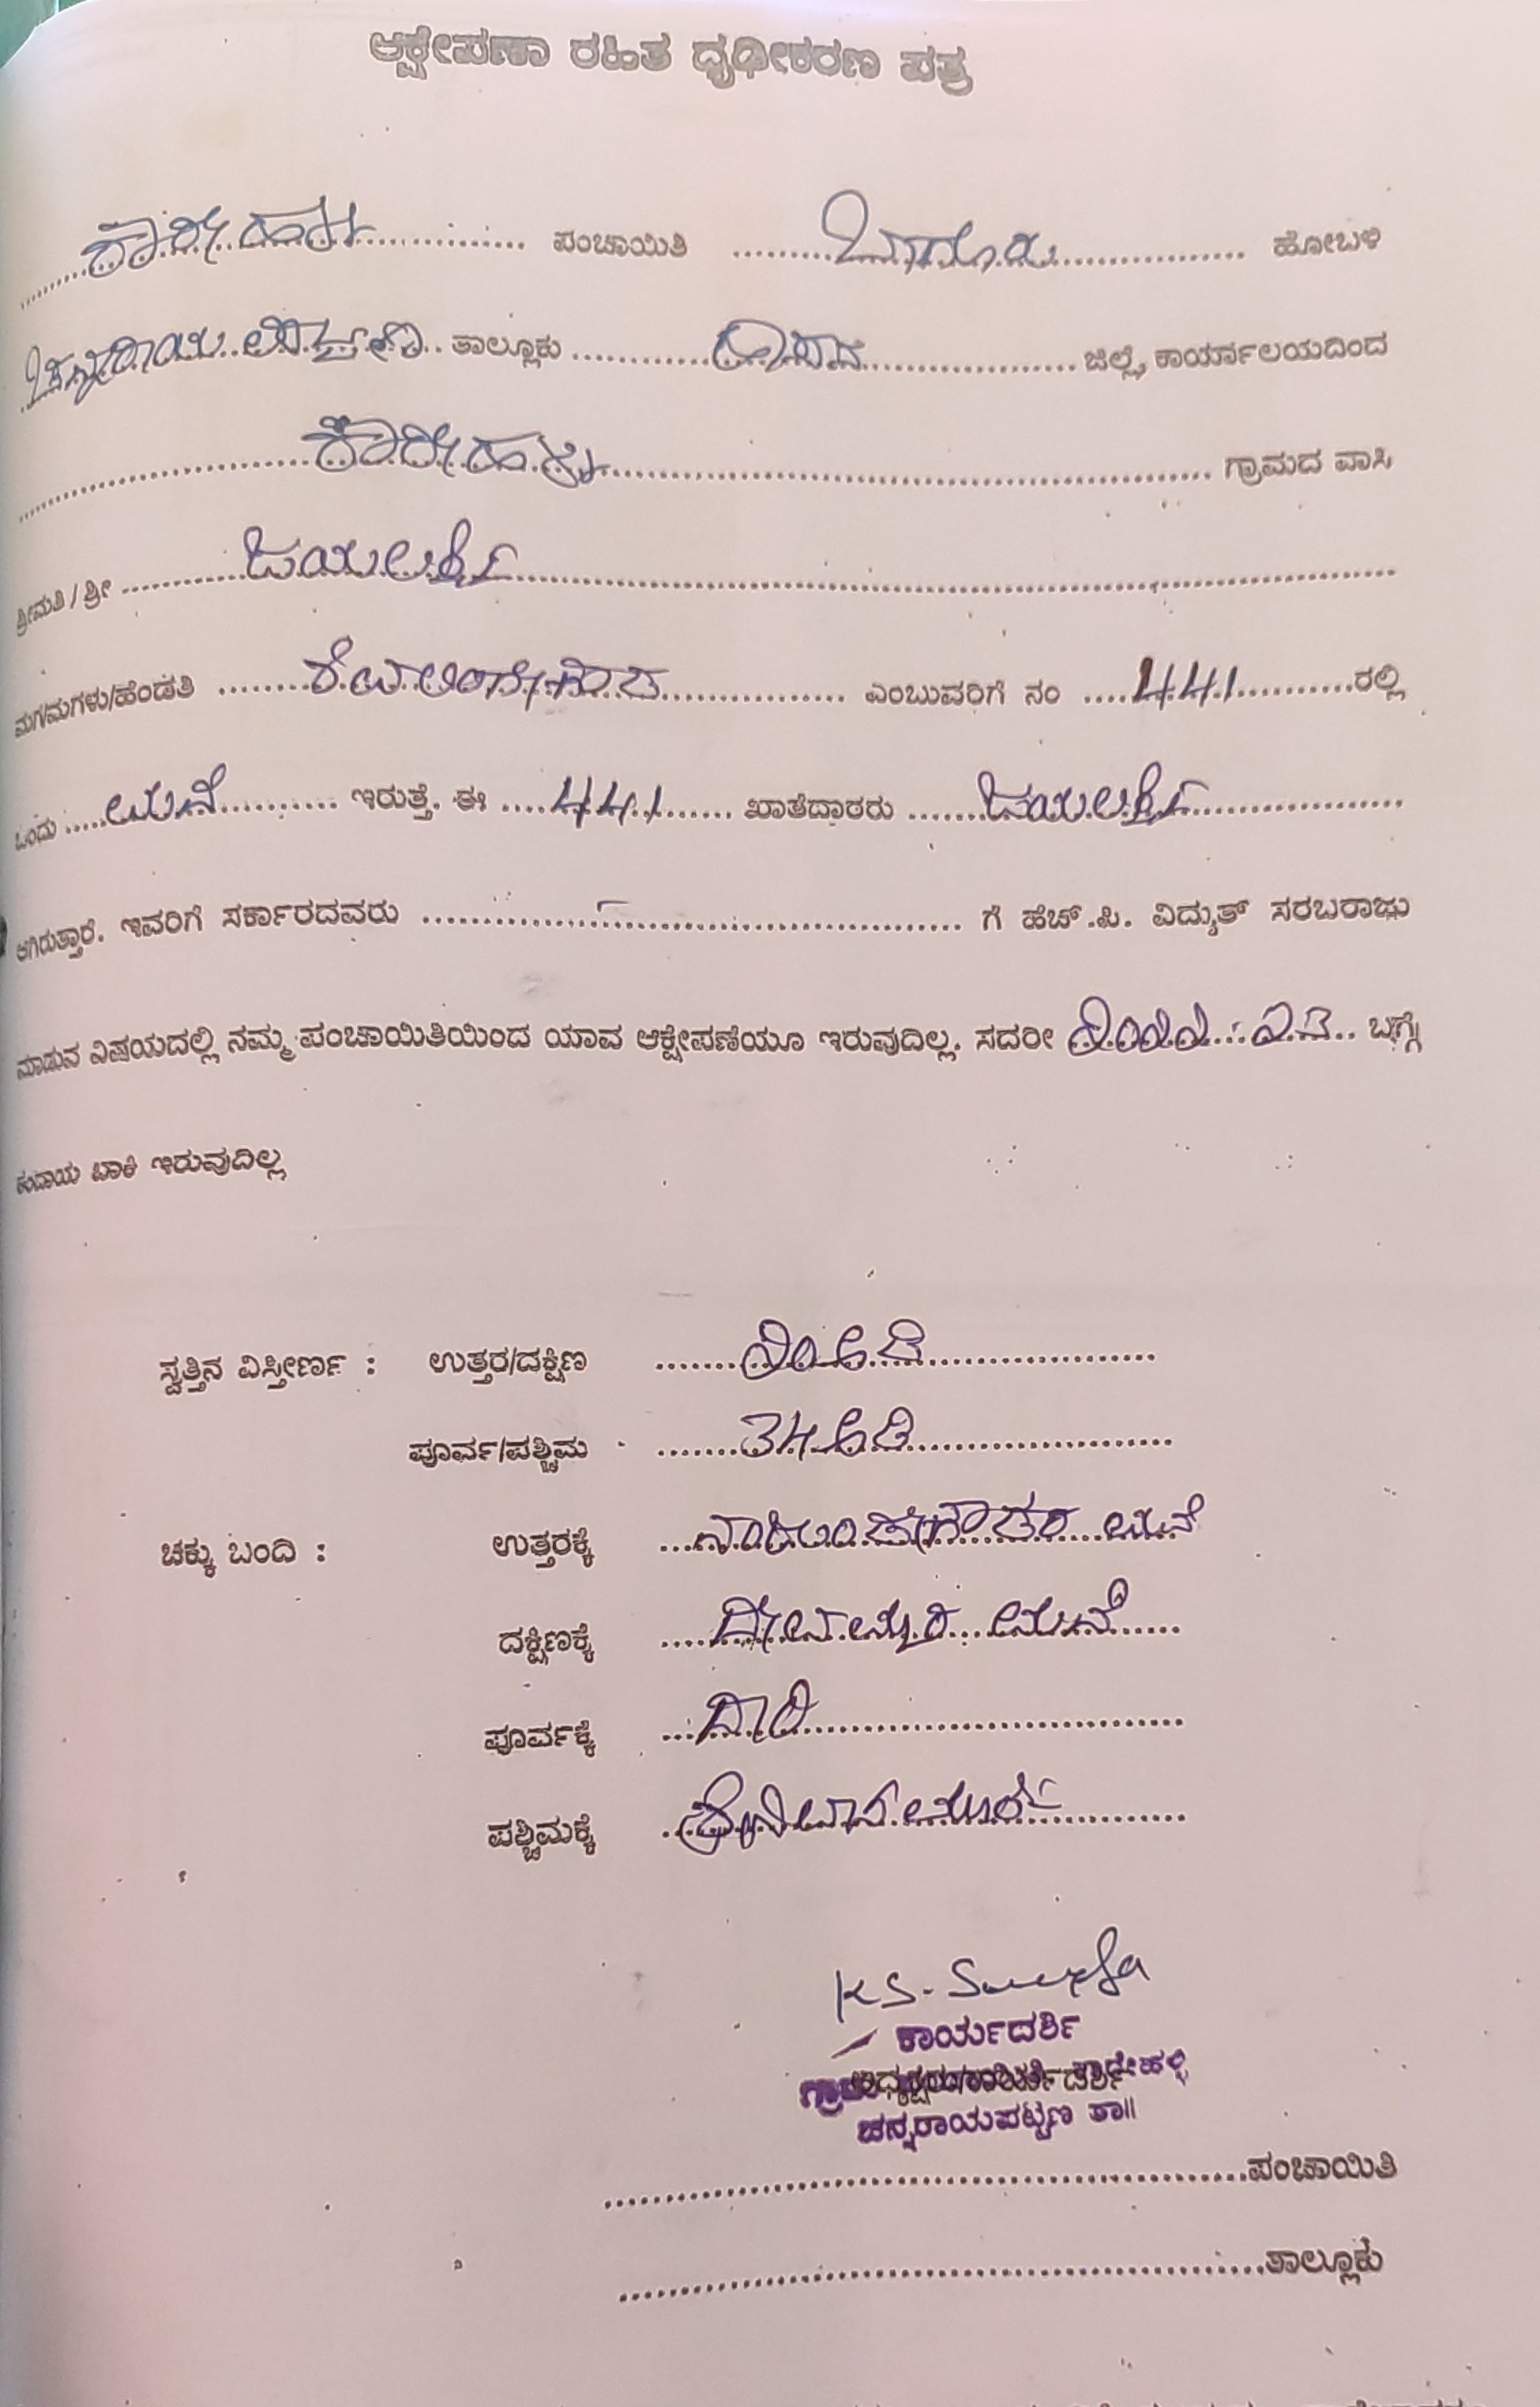 ಆಕ್ಷೇಪಣಾ ರಹಿತ ದೃಢೀಕರಣ ಪತ್ರ
ಕಾರೇಹಳ್ಳಿ ಪಂಚಾಯಿತಿ ಬಾಗೂರು ಹೋಬಳಿ
ಚನ್ನರಾಯಪಟ್ಟಣ ತಾಲ್ಲೂಕು ಹಾಸನ ಜಿಲ್ಲೆ, ಕಾರ್ಯಾಲಯದಿಂದ
ಕಾರೇಹಳ್ಳಿ ಗ್ರಾಮದ ವಾಸಿ
ಶ್ರೀಮತಿ / ಶ್ರೀ ಜಯಲಕ್ಷ್ಮಿ
ಮಗ/ಮಗಳು/ಹೆಂಡತಿ ಎಂಬುವರಿಗೆ ನಂ 441 ರಲ್ಲಿ
ಒಂದು ಮನೆ ಇರುತ್ತೆ. ಈ 441 ಖಾತೆದಾರರು ಜಯಲಕ್ಷ್ಮಿ
ಆಗಿರುತ್ತಾರೆ. ಇವರಿಗೆ ಸರ್ಕಾರದವರು ಗೆ ಹೆಚ್.ಪಿ. ವಿದ್ಯುತ್ ಸರಬರಾಜು
ಮಾಡುವ ವಿಷಯದಲ್ಲಿ ನಮ್ಮ ಪಂಚಾಯಿತಿಯಿಂದ ಯಾವ ಆಕ್ಷೇಪಣೆಯೂ ಇರುವುದಿಲ್ಲ. ಸದರೀ 2022-23 ಬಗ್ಗೆ
ಕಂದಾಯ ಬಾಕಿ ಇರುವುದಿಲ್ಲ
ಸ್ವತ್ತಿನ ವಿಸ್ತೀರ್ಣ : ಉತ್ತರ/ದಕ್ಷಿಣ 20 ಅಡಿ
ಪೂರ್ವ/ಪಶ್ಚಿಮ 34 ಅಡಿ
ಚಕ್ಕು ಬಂದಿ : ಉತ್ತರಕ್ಕೆ ಮನೆ
ದಕ್ಷಿಣಕ್ಕೆ ದೇವಮ್ಮರ ಮನೆ
ಪೂರ್ವಕ್ಕೆ ದಾರಿ
ಪಶ್ಚಿಮಕ್ಕೆ ಶ್ರೀನಿವಾಸಮೂರ್ತಿ
K S.
ಕಾರ್ಯದರ್ಶಿ
ಅಧ್ಯಕ್ಷರು/ಕಾರ್ಯದರ್ಶಿ
ಚನ್ನರಾಯಪಟ್ಟಣ ತಾ||
ಪಂಚಾಯಿತಿ
ತಾಲ್ಲೂಕು